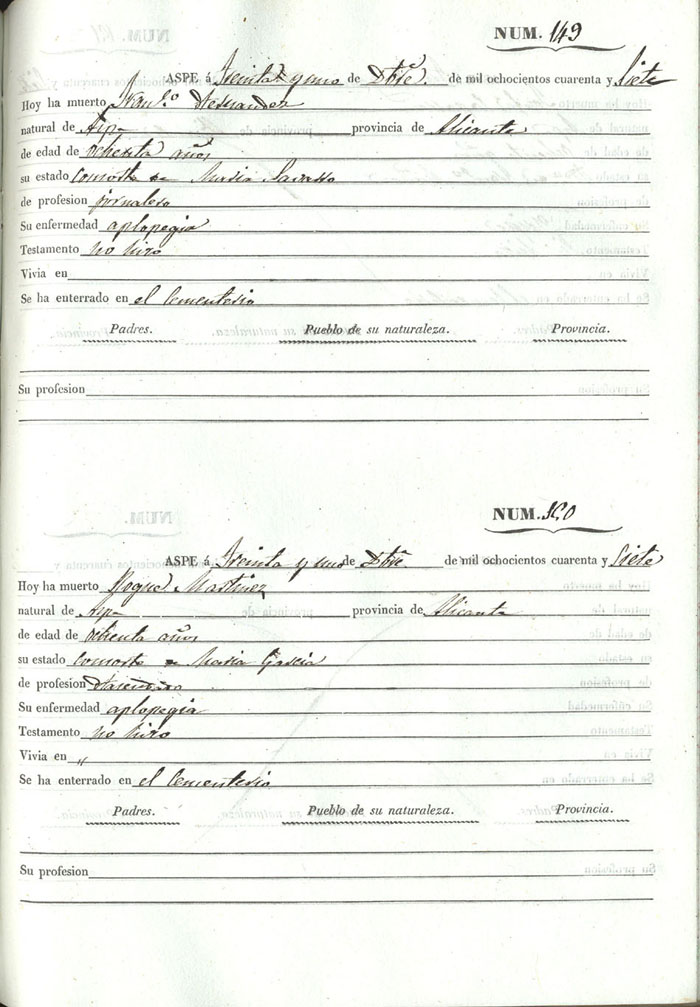 NUM. 149
ASPE á Treinta y uno de Dbre. de mil ochocientos cuarenta y Siete
Hoy ha muerto Fran.co Hernandez
natural de Aspe provincia de Alicante
de edad de ochenta años
su estado consorte de Maria
de profesion jornalero
Su enfermedad aplopegia
Testamento no hizo
Vivia en
Se ha enterrado en el Cementerio
Padres. Pueblo de su naturaleza. Provincia.
Su profesion
NUM. 150
ASPE á Treinta y uno de Dbre. de mil ochocientos cuarenta y Siete
Hoy ha muerto Roque Martinez
natural de Aspe provincia de Alicante
de edad de ochenta años
su estado consorte de Maria Garcia
de profesion
Su enfermedad aplopegia
Testamento no hizo
Vivia en "
Se ha enterrado en el Cementerio
Padres. Pueblo de su naturaleza. Provincia.
Su profesion